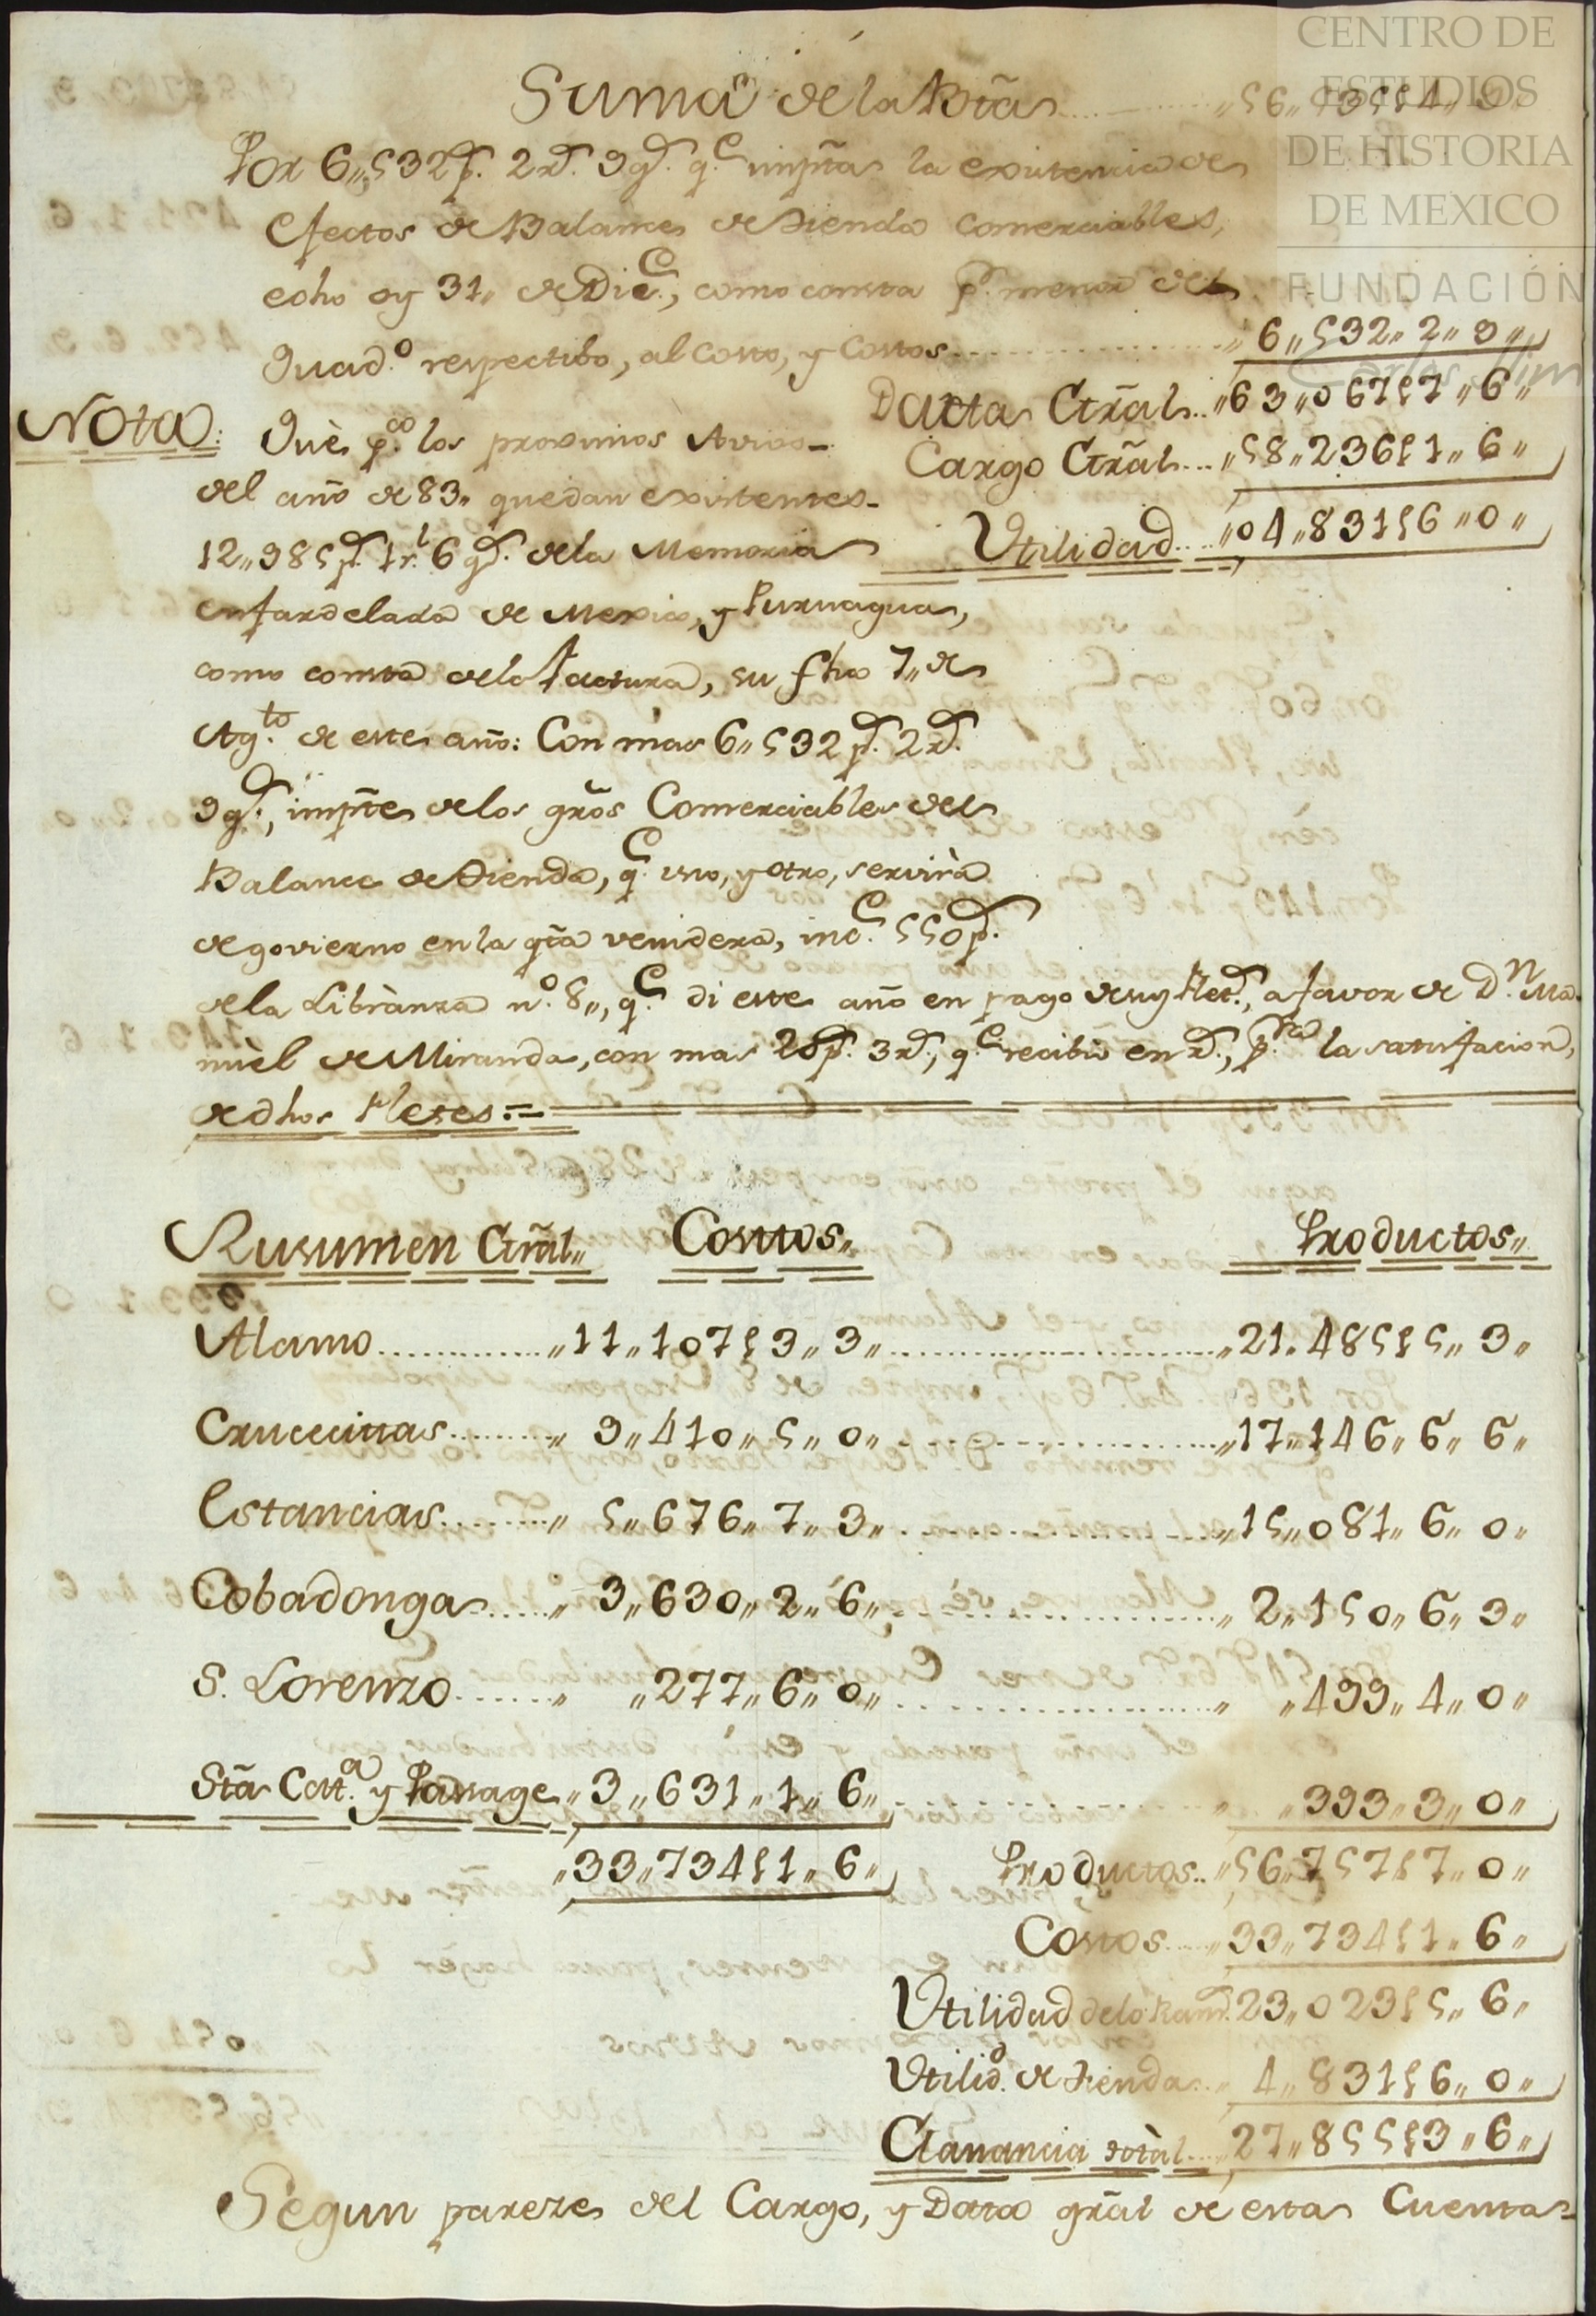 CENTRO DE
ESTUDIOS
DE HISTORIA
DE MEXICO
FUNDACIÓN
Carlos Slim
Suma de la Bta
Por 6,,532 ps. 2 rs. 9 gs. q.e impta la existencia de
efectos de Balance de Tienda comerciables,
echo oy 31,, de Dic.e, como consta p.r menor del
Quad.o respectibo, al Costo, y Costos ,, 6,,532,,2,,9,,
Datta Gral.. ,,63,,067,,7,,6,,
Cargo Gral... ,,58,,236,,1,,6,,
Utilidad.... ,,04,,831,,6,,0,,
Nota: Què p.a los proximos Avios
del año de 83,, quedan existentes
12,,985 ps. 1 r.l 6 gs. de la Memoria
enfardelada de Mexico, y Puruagua,
como consta de la factura, su fha 7,, de
Ag.to de este año: Con mas 6,,532 ps. 2 rs.
9 gs., impte de los gros Comerciables del
Balance de Tienda, q.e uno, y otro, servirà
de govierno en la qta venidera, inc.e 550 ps.
de la Libranza n.o 8,,, q.e di este año en pago de , a favor de D.n Ma
nuèl de Miranda, con mas ps. 3 rs., q.e recibiò en rs., p.ra la satisfacion,
de dhos fletes.=
Rusumen Gral,, Costos,, Productos,,
Alamo ,,11,,107,,3,,3,, ,,21,,485,,5,,3,,
Crucecittas ,, 9,,410,,5,,0,, ,,17,,146,,6,,6,,
Estancias ,, 5,,676,,7,,3,, ,,15,,081,,6,,0,,
Cobadonga ,, 3,,630,,2,,6,, ,, 2,,150,,6,,3,,
S. Lorenzo ,, ,,277,,6,,0,, ,, ,,499,,4,,0,,
Sta Cat.a y Passage ,,3,,631,,1,,6,, ,, ,,393,,3,,0,,
,,33,,734,,1,,6,, Productos.. ,,56,,757,,7,,0,,
Costos ,,33,,734,,1,,6,,
Utilidad de lo 23,,023,,5,,6,,
Utilid.d de Tienda ,, 4,,831,,6,,0,,
Ganancia total ,,27,,855,,3,,6,,
Segun pareze del Cargo, y Data gral de esta Cuenta